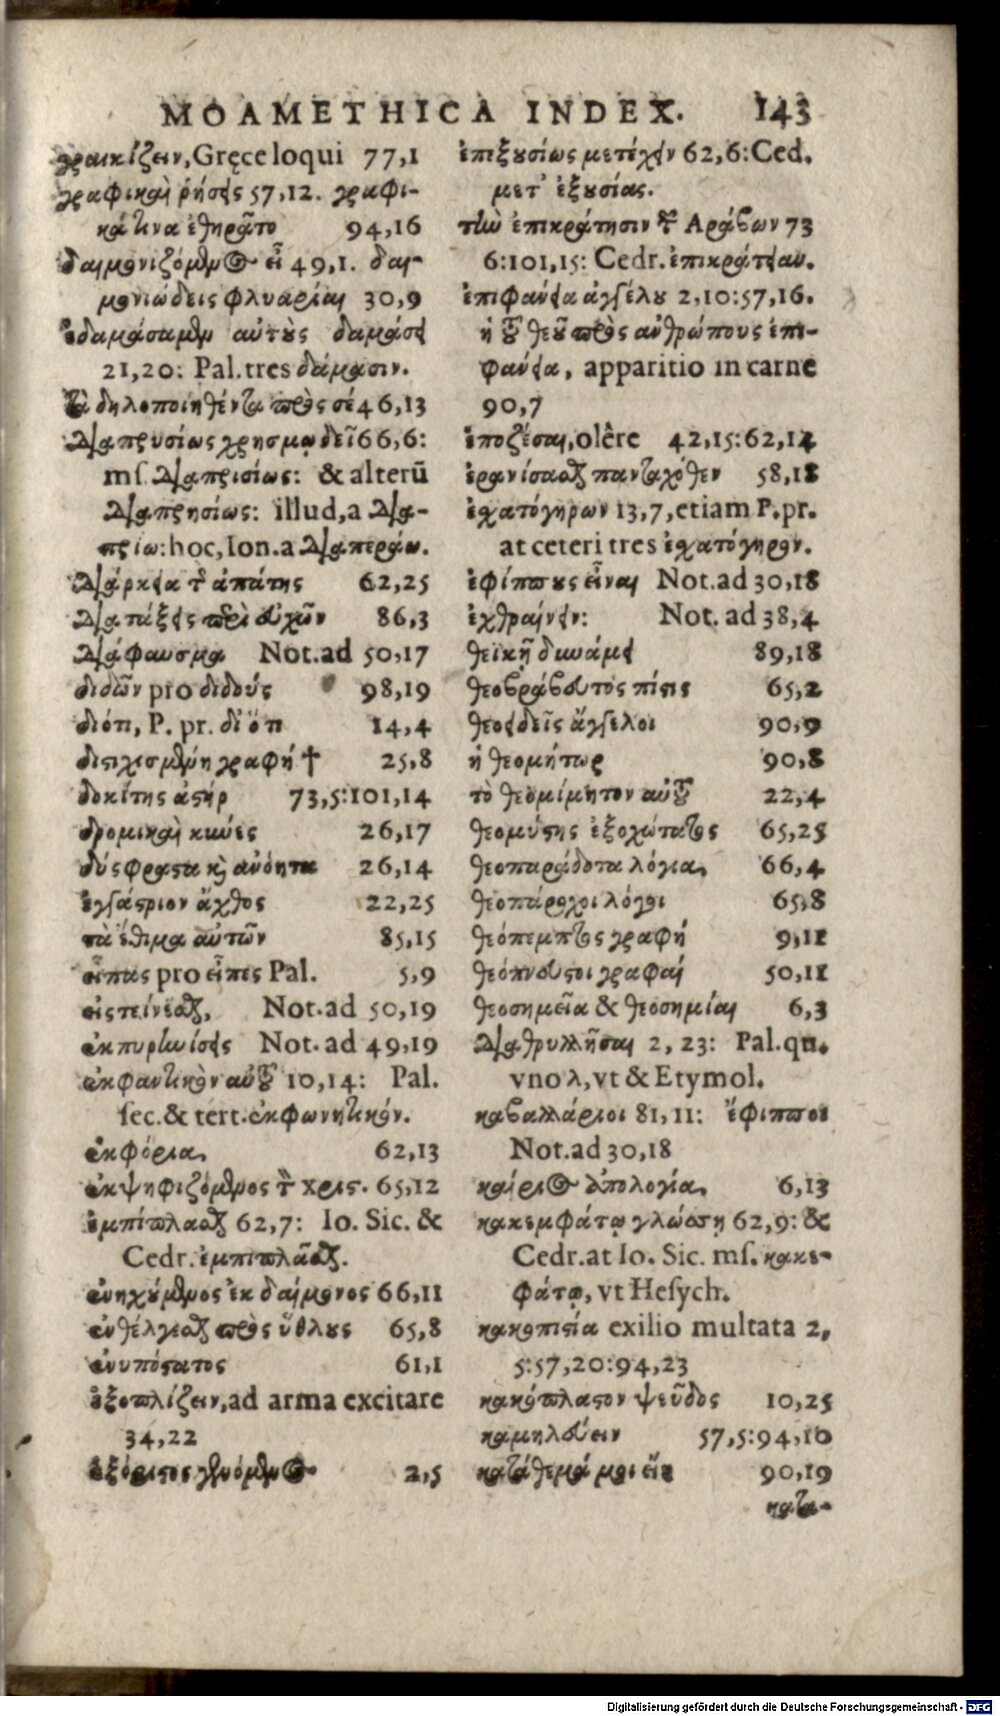 MOAMETHICA INDEX. 143
γραικίζειν, Gręce loqui 77,1
γραφικαὶ ῥήσεις 57,12. γραφι-
κά τινα ἐθηρᾶτο 94,16
δαιμονιζόμενος εἶ 49,1. δαι-
μονιώδεις φλυαρίαι 30,9
ἐδαμάσαμεν αὐτοὺς δαμάσει
21,20: Pal. tres δάμασιν.
τὰ δηλοποιηθέντα πρὸς σέ 46,13
διαπρυσίως χρησμῳδεῖ 66,6:
mſ. διαπρισίως: & alterũ
διαπρησίως: illud, a δια-
πρίω: hoc, Ion. a διαπεράω.
διάρκεια τῆς ἀπάτης 62,25
διατάξεις περὶ εὐχῶν 86,3
διάφαυσμα Not. ad 50,17
διδῶν pro διδούς 98,19
διότι, P. pr. δι' ὅτι 14,4
διεστιχισμένη γραφή † 25,8
δοκίτης ἀστήρ 73,5:101,14
δρομικαὶ κύνες 26,17
δύσφραστα καὶ ἀνόητα 26,14
ἐγγάστριον ἄχθος 22,25
τὰ ἔθιμα αὐτῶν 85,15
εἶπας pro εἶπες Pal. 5,9
Not. ad 50,19
Not. ad 49,19
ἐκφαντικὸν αὐτοῦ 10,14: Pal.
ſec. & tert. ἐκφωνητικόν.
ἐκφόρια. 62,13
ἐκψηφιζόμενος τὸν χρις. 65,12
ἐμπίπλασθαι 62,7: Io. Sic. &
Cedr. ἐμπιπλᾶσθαι.
ἐνηχούμενος ἐκ δαίμονος 66,11
ἐνθέλγεσθαι πρὸς ὕθλους 65,8
ἐνυπόστατος 61,1
ἐξοπλίζειν, ad arma excitare
34,22
ἐξόριστος γενόμενος 2,5
ἐπεξουσίως μετέχειν 62,6: Ced.
μετ' ἐξουσίας.
τὴν ἐπικράτησιν τῶν Ἀράβων 73
6:101,15: Cedr. ἐπικράτειαν.
ἐπιφάνεια ἀγγέλου 2,10:57,16.
ἡ τοῦ θεοῦ πρὸς ἀνθρώπους ἐπι-
φάνεια, apparitio in carne
90,7
ἐποζέσαι, olêre 42,15:62,14
ἐρανίσασθαι πανταχόθεν 58,18
ἐσχατόγηρων 13,7, etiam P. pr.
at ceteri tres ἐσχατόγηρον.
ἐφίππους εἶναι Not. ad 30,18
ἐχθραίνειν: Not. ad 38,4
θεϊκῇ δυνάμει 89,18
θεοβράβευτος πίστις 65,2
θεοειδεῖς ἄγγελοι 90,9
ἡ θεομήτωρ 90,8
τὸ θεομίμητον αὐτοῦ 22,4
θεομύστης ἐξοχώτατος 65,25
θεοπαράδοτα λόγια. 66,4
θεοπάροχοι λόγοι 65,8
θεόπεμπτος γραφή 9,11
θεόπνευστοι γραφαί 50,11
θεοσημεῖα & θεοσημίαι 6,3
διαθρυλλῆσαι 2, 23: Pal. qu.
vno λ, vt & Etymol.
καβαλλάριοι 81,11: ἔφιπποι
Not. ad 30,18
καίριος ἀπολογία. 6,13
κακεμφάτῳ γλώσσῃ 62,9: &
Cedr. at Io. Sic. mſ. κακε-
φάτῳ, vt Heſych.
κακοπιστία exilio multata 2,
5:57,20:94,23
κακόπλαστον ψεῦδος 10,25
καμηλεύειν 57,5:94,10
κατάθεμά μοι εἴη 90,19
κατα-
Digitalisierung gefördert durch die Deutsche Forschungsgemeinschaft - DFG